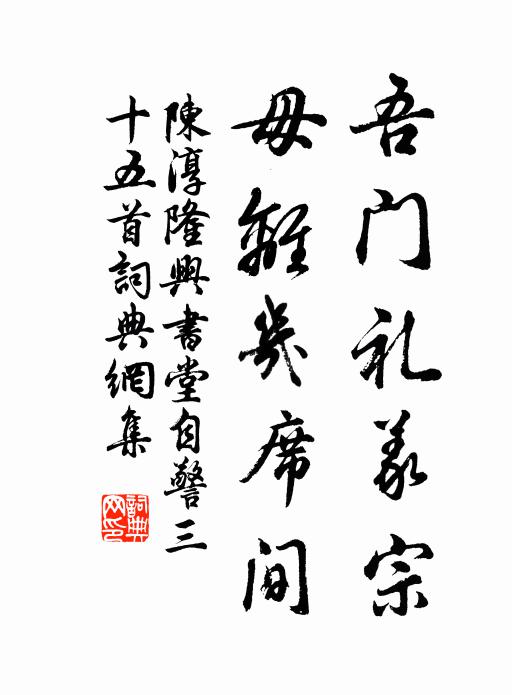 吾门礼义宗
毋離几席間
陳淳隆興書堂自警三
十五首詞典網集
詞典网印